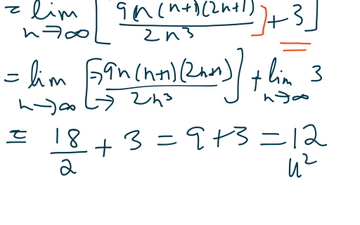 = lim n→∞ [ 9n(n+1)(2n+1) / 2n³ ] + 3 ]
= lim n→∞ [ → 9n(n+1)(2n+1) / → 2n³ ] + lim n→∞ 3
= 18/2 + 3 = 9 + 3 = 12 u²